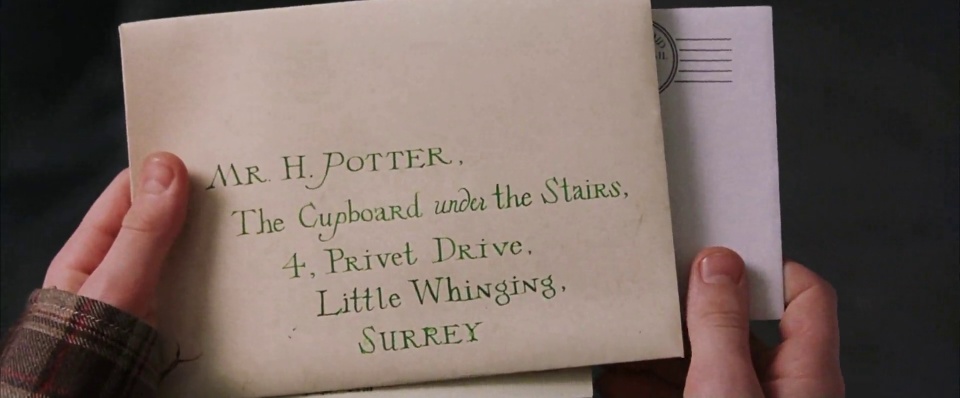 Mr. H. Potter,
The Cupboard under the Stairs,
4, Privet Drive,
Little Whinging,
SURREY